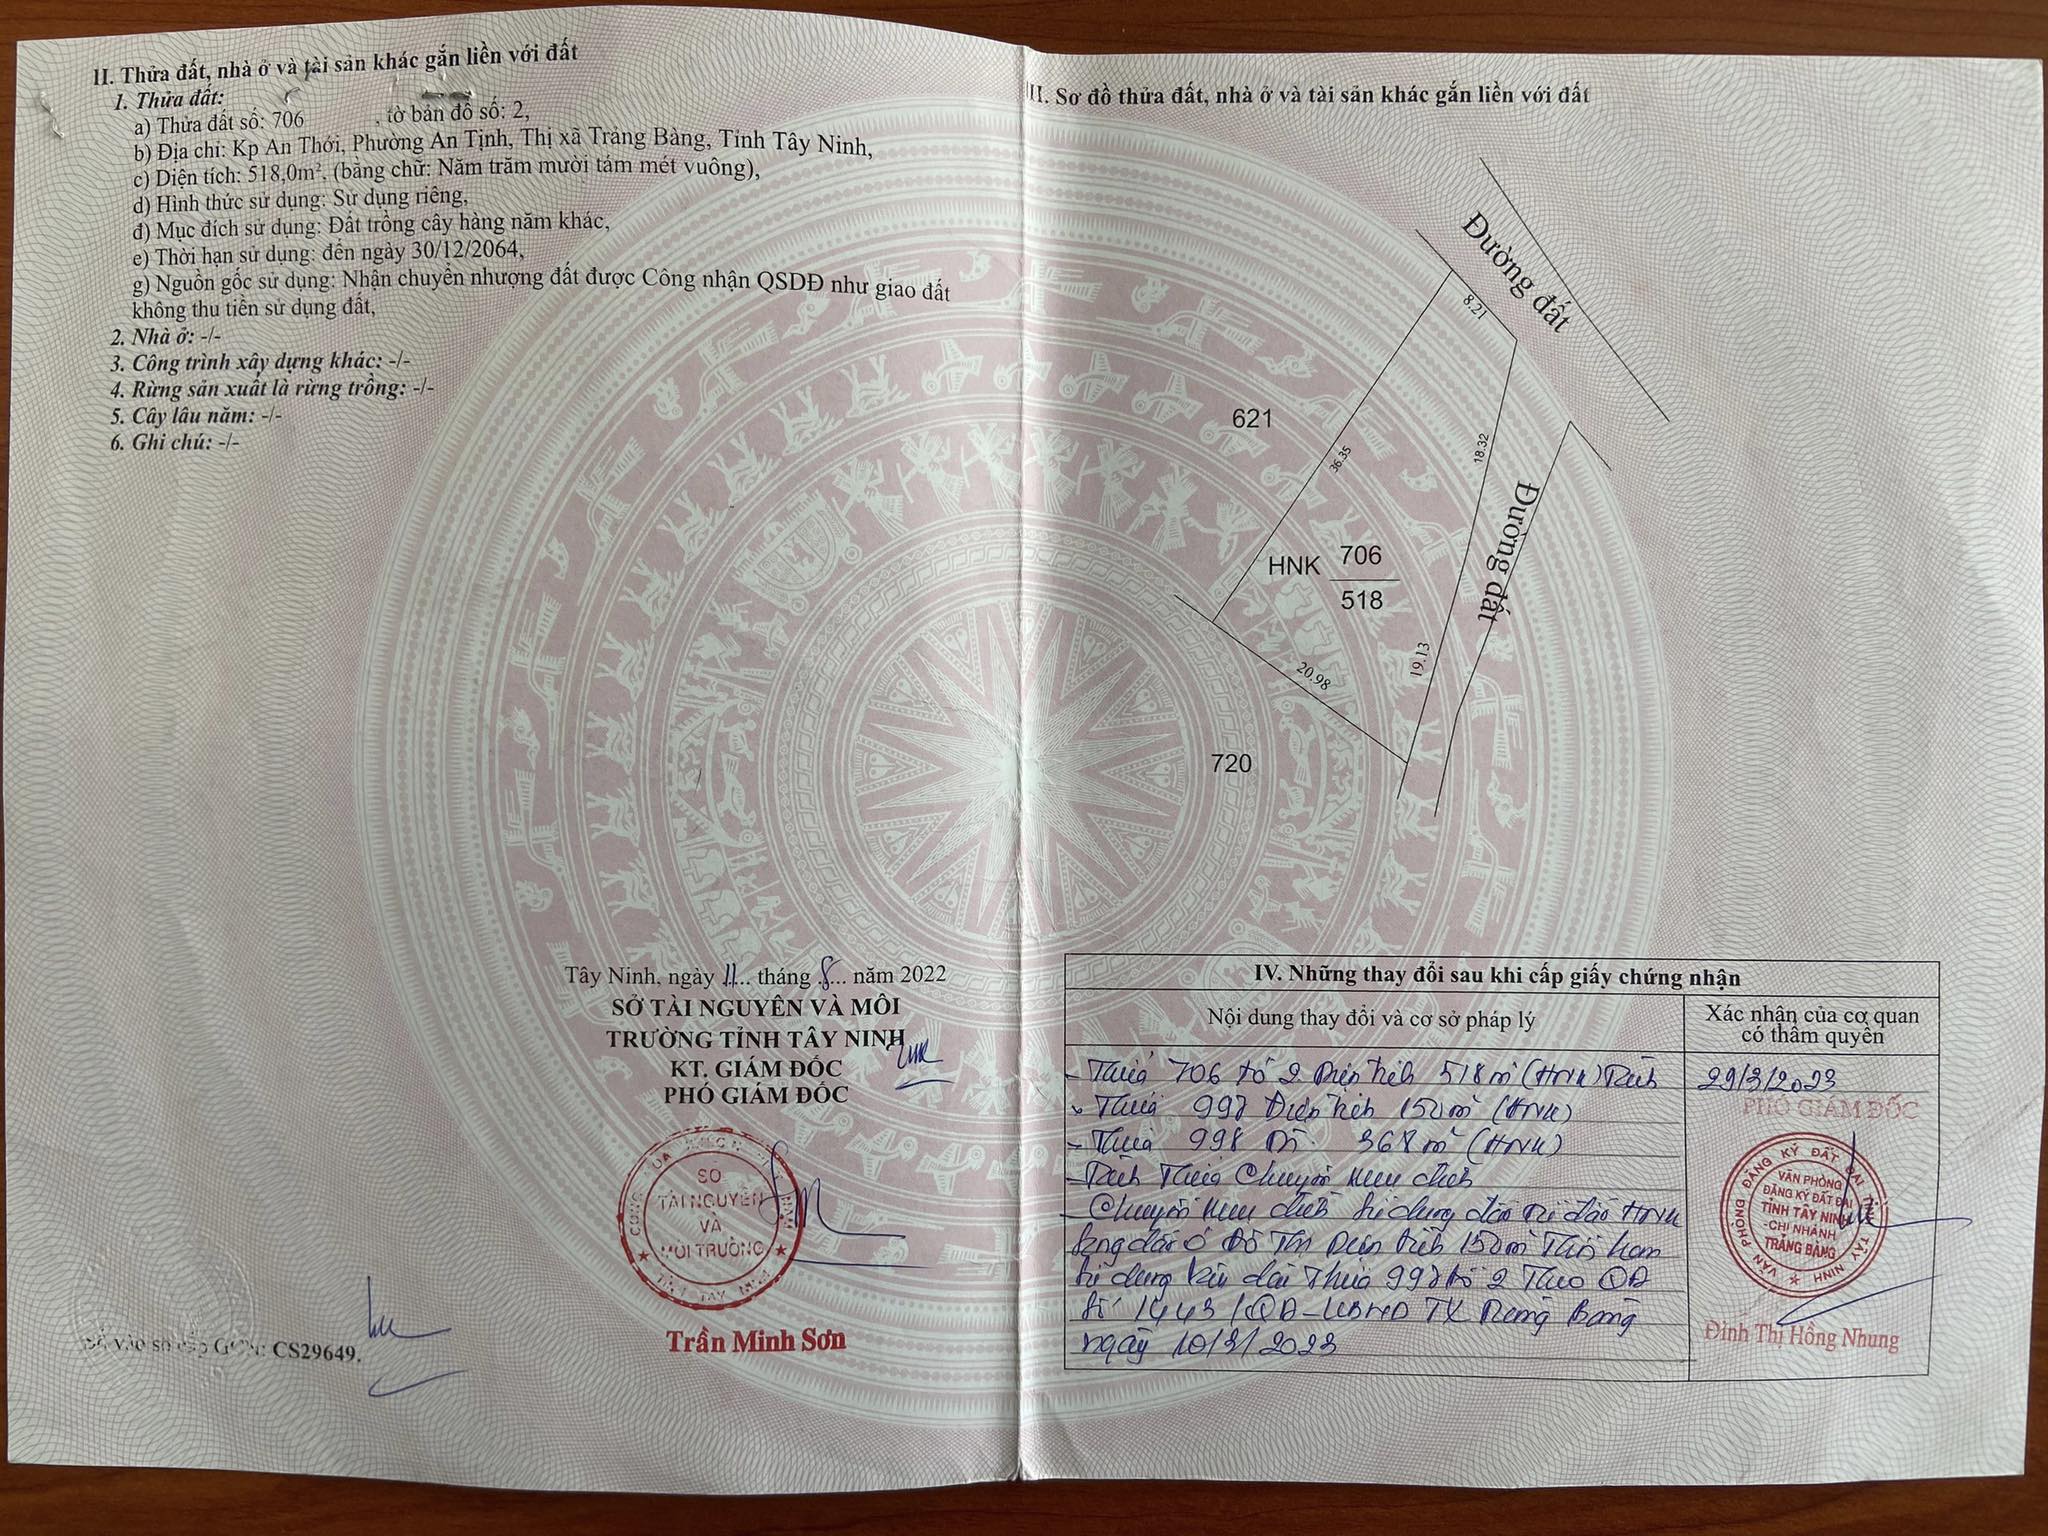 II. Thửa đất, nhà ở và tài sản khác gắn liền với đất
1. Thửa đất:
a) Thửa đất số: 706 , tờ bản đồ số: 2,
b) Địa chỉ: Kp An Thới, Phường An Tịnh, Thị xã Trảng Bàng, Tỉnh Tây Ninh,
c) Diện tích: 518,0m², (bằng chữ: Năm trăm mười tám mét vuông),
d) Hình thức sử dụng: Sử dụng riêng,
đ) Mục đích sử dụng: Đất trồng cây hàng năm khác,
e) Thời hạn sử dụng: đến ngày 30/12/2064,
g) Nguồn gốc sử dụng: Nhận chuyển nhượng đất được Công nhận QSDĐ như giao đất
không thu tiền sử dụng đất,
2. Nhà ở: -/-
3. Công trình xây dựng khác: -/-
4. Rừng sản xuất là rừng trồng: -/-
5. Cây lâu năm: -/-
6. Ghi chú: -/-
Tây Ninh, ngày 11... tháng 8... năm 2022
SỞ TÀI NGUYÊN VÀ MÔI
TRƯỜNG TỈNH TÂY NINH
KT. GIÁM ĐỐC
PHÓ GIÁM ĐỐC
SỞ
TÀI NGUYÊN
VÀ
MÔI TRƯỜNG
Trần Minh Sơn
Số vào sổ cấp GCN: CS29649.
III. Sơ đồ thửa đất, nhà ở và tài sản khác gắn liền với đất
Đường đất
8.21
621
36.35
18.32
Đường đất
HNK 706
518
19.13
20.98
720
IV. Những thay đổi sau khi cấp giấy chứng nhận
Nội dung thay đổi và cơ sở pháp lý
Xác nhận của cơ quan
có thẩm quyền
- Thửa 706 tờ 2 Diện tích 518m² (HNK) Tách
- Thửa 997 Diện tích 150m² (HNK)
- Thửa 998 Dt: 368m² (HNK)
- Tách Thửa Chuyển mục đích
- Chuyển mục đích sử dụng đất từ đất HNK
sang đất ở Đô Thị Diện tích 150m² Thời hạn
sử dụng lâu dài Thửa 997 tờ 2 Theo QĐ
số 1443/QĐ-UBND TX Trảng Bàng
ngày 10/3/2023
29/3/2023
PHÓ GIÁM ĐỐC
VĂN PHÒNG ĐĂNG KÝ ĐẤT ĐAI TỈNH TÂY NINH
VĂN PHÒNG
ĐĂNG KÝ ĐẤT ĐAI
TỈNH TÂY NINH
-CHI NHÁNH
TRẢNG BÀNG
Đinh Thị Hồng Nhung